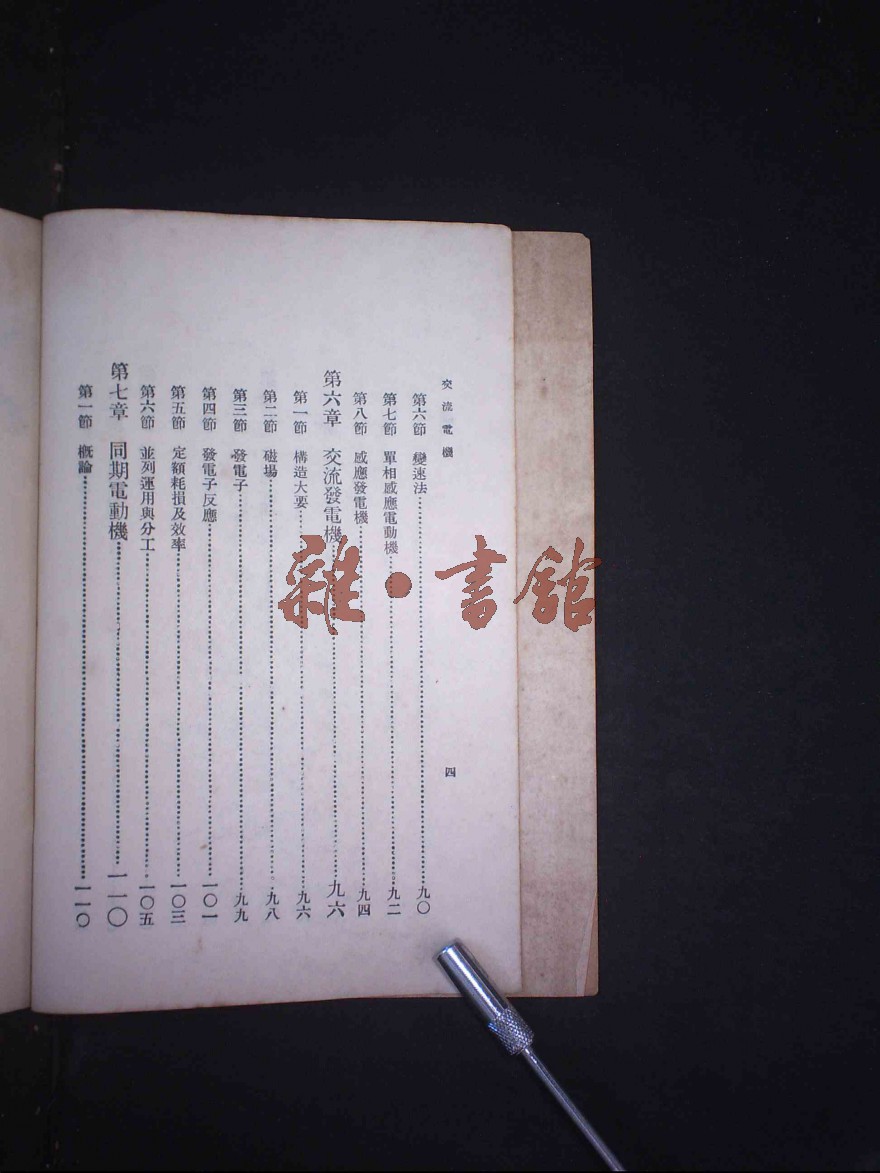 交流電機
四
第六節 變速法……九〇
第七節 單相感應電動機……九二
第八節 感應發電機……九四
第六章 交流發電機……九六
第一節 構造大要……九六
第二節 磁場……九八
第三節 發電子……九九
第四節 發電子反應……一〇一
第五節 定額耗損及效率……一〇三
第六節 並列運用與分工……一〇五
第七章 同期電動機……一一〇
第一節 概論……一一〇
雜·書館